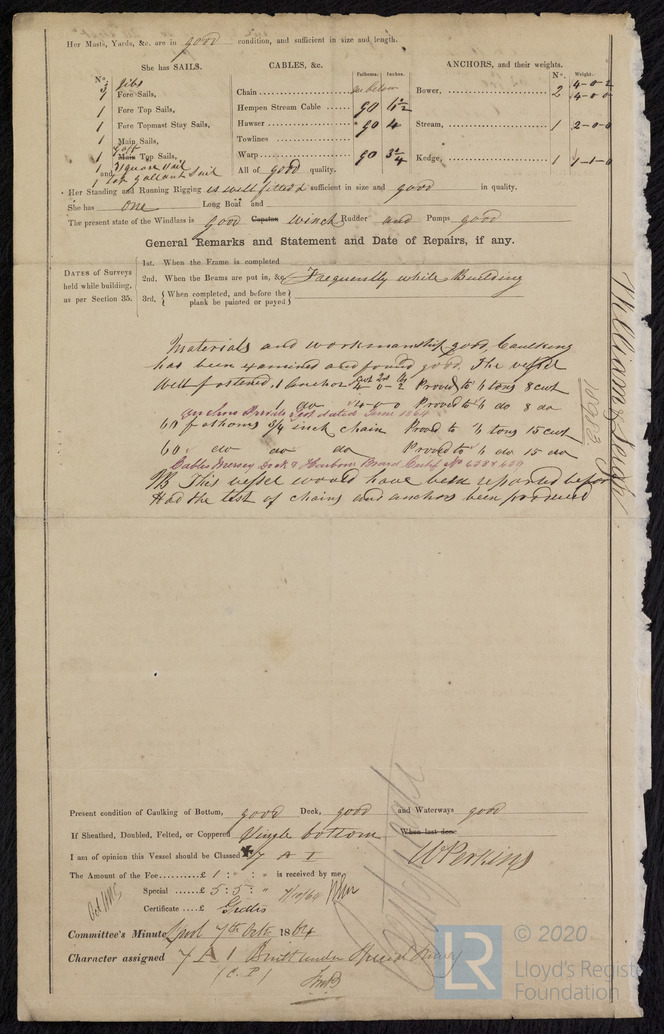 Her Masts, Yards, &c. are in good condition, and sufficient in size and length.
She has SAILS.
CABLES, &c.
ANCHORS, and their weights.
N°.
Fathoms. Inches.
N°. Weight.
3 jibs
1 Fore Sails,
1 Fore Top Sails,
1 Fore Topmast Stay Sails,
1 Main Sails,
1 Gaff Main Top Sails,
and 1 Square Sail
1 Top Gallant Sail
Chain see below
Hempen Stream Cable 90
Hawser 90 4
Towlines
Warp 90 3 3/4
All of good quality.
Bower, 2 4-0-2
4-0-0
Stream, 1 2-0-0
Kedge, 1 1-1-0
Her Standing and Running Rigging is well fitted sufficient in size and good in quality.
She has one Long Boat and
The present state of the Windlass is good Capstan winch Rudder and Pumps good
General Remarks and Statement and Date of Repairs, if any.
DATES of Surveys held while building, as per Section 35.
1st. When the Frame is completed
2nd. When the Beams are put in, &c. Frequently while Building
3rd. { When completed, and before the plank be painted or payed }
Materials and workmanship good, Caulking
has been examined and found good. The vessel
well fastened, 1 anchor cwt 4 qrs 0 lb 2 Proved to tons 8 cwt
1 do 4-0-0 Proved to do 8 do
Anchors Test dated June 1864
60 fathoms 3/4 inch chain Proved to tons 15 cwt
60 do do do Proved to do 15 do
Cables Mersey Dock & Harbour Board Certif No
NB This vessel would have been reported before
Had the test of chains and anchors been produced
William & Leigh
Present condition of Caulking of Bottom, good Deck, good and Waterways good
If Sheathed, Doubled, Felted, or Coppered Single bottom When last done
I am of opinion this Vessel should be Classed 7 A 1
W Perkins
The Amount of the Fee £ 1 : " : " is received by me,
Special £ 5 : 5 : " 7/10/64
Certificate £ Gratis
Committee's Minute Lpool 7th Octr 1864
Character assigned 7 A 1 Built under Special Survey
(C. P)
LR
© 2020
Lloyd's Register
Foundation